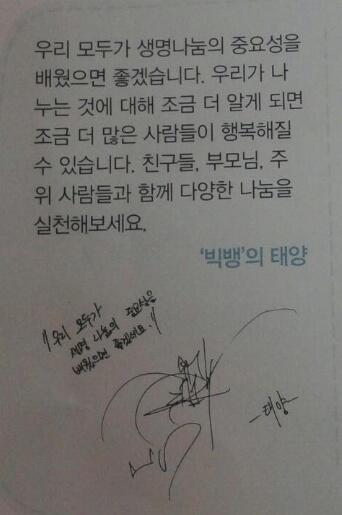 우리 모두가 생명나눔의 중요성을
배웠으면 좋겠습니다. 우리가 나
누는 것에 대해 조금 더 알게 되면
조금 더 많은 사람들이 행복해질
수 있습니다. 친구들, 부모님, 주
위 사람들과 함께 다양한 나눔을
실천해보세요.
‘빅뱅’의 태양
"우리 모두가
생명 나눔의 중요성을
배웠으면 좋겠어요."
-태양-